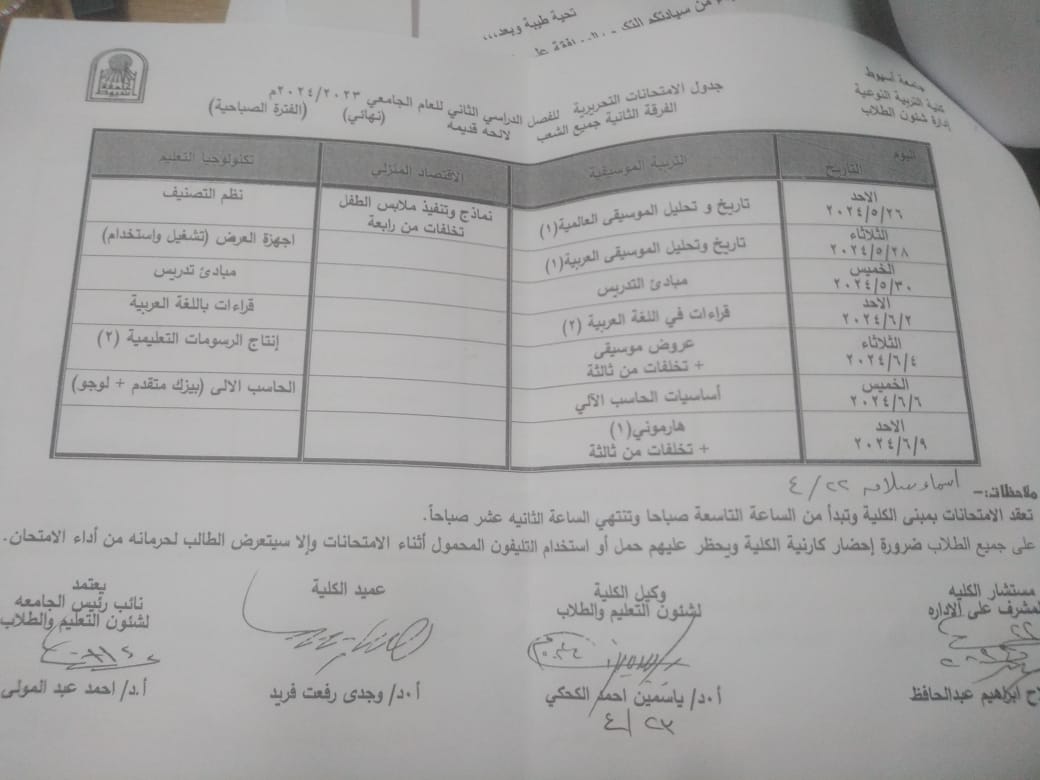 من سيادتكم التك
تحية طيبة وبعد،،،
جامعة أسيوط
كلية التربية النوعية
إدارة شئون الطلاب
جامعة
أسيوط
جدول الامتحانات التحريرية للفصل الدراسي الثاني للعام الجامعي ٢٠٢٤/٢٠٢٣م
الفرقة الثانية جميع الشعب لائحه قديمه (نهائي) (الفترة الصباحية)
اليوم
التاريخ
التربية الموسيقية
الاقتصاد المنزلي
تكنولوجيا التعليم
الاحد
٢٠٢٤/٥/٢٦
تاريخ و تحليل الموسيقى العالمية(١)
نماذج وتنفيذ ملابس الطفل
تخلفات من رابعة
نظم التصنيف
الثلاثاء
٢٠٢٤/٥/٢٨
تاريخ وتحليل الموسيقى العربية(١)
اجهزة العرض (تشغيل واستخدام)
الخميس
٢٠٢٤/٥/٣٠
مبادئ التدريس
مبادئ تدريس
الاحد
٢٠٢٤/٦/٢
قراءات في اللغة العربية (٢)
قراءات باللغة العربية
الثلاثاء
٢٠٢٤/٦/٤
عروض موسيقى
+ تخلفات من ثالثة
إنتاج الرسومات التعليمية (٢)
الخميس
٢٠٢٤/٦/٦
أساسيات الحاسب الآلي
الحاسب الالى (بيزك متقدم + لوجو)
الاحد
٢٠٢٤/٦/٩
هارموني(١)
+ تخلفات من ثالثة
ملاحظات:- اسماء سلامه ٤/٢٢
تعقد الامتحانات بمبنى الكلية وتبدأ من الساعة التاسعة صباحا وتنتهي الساعة الثانيه عشر صباحاً.
على جميع الطلاب ضرورة إحضار كارنية الكلية ويحظر عليهم حمل أو استخدام التليفون المحمول أثناء الامتحانات وإلا سيتعرض الطالب لحرمانه من أداء الامتحان.
مستشار الكليه
المشرف على الإداره
اح ابراهيم عبدالحافظ
وكيل الكلية
لشئون التعليم والطلاب
أ.د/ ياسمين احمد الكحكي
٤/٢٣
عميد الكلية
أ.د/ وجدى رفعت فريد
يعتمد
نائب رئيس الجامعه
لشئون التعليم والطلاب
أ.د/ احمد عبد المولى